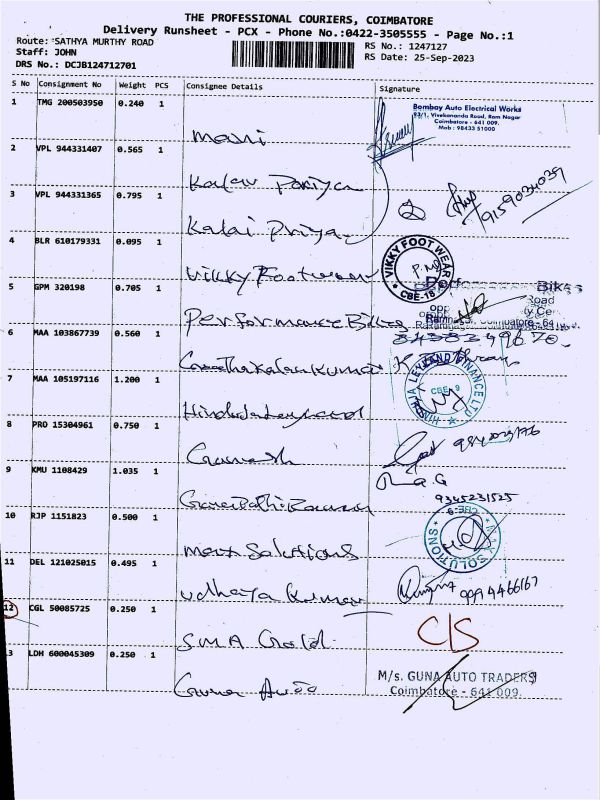 THE PROFESSIONAL COURIERS, COIMBATORE
Delivery Runsheet - PCX - Phone No.:0422-3505555 - Page No.:1
Route: SATHYA MURTHY ROAD
Staff: JOHN
DRS No.: DCJB124712701
RS No.: 1247127
RS Date: 25-Sep-2023
S No Consignment No Weight PCS Consignee Details Signature
1 TMG 200503950 0.240 1 Mani
Bombay Auto Electrical Works
93/1, Vivekananda Road, Ram Nagar
Coimbatore - 641 009.
Mob : 98433 51000
2 VPL 944331407 0.565 1 Kalai Pariya
3 VPL 944331365 0.795 1 Kalai Priya
9159034039
4 BLR 610179331 0.095 1 Vikky Footwear
VIKKY FOOT WEAR
CBE-18
5 GPM 320198 0.705 1 Performance Bikes
6 MAA 103867739 0.560 1 Kumar
7 MAA 105197116 1.200 1 Hinduja Leyland
HINDUJA LEYLAND FINANCE LTD
CBE - 9
8 PRO 15304961 0.750 1 Ganesh
9 KMU 1108429 1.035 1 Ganapathi Raman
R a G
9345231525
10 RJP 1151823 0.500 1 Max Solutions
MAX SOLUTIONS
CBE-9
11 DEL 121025015 0.495 1 Udhaya Kumar
9994466167
12 CGL 50085725 0.250 1 SMA Gold
C/S
13 LDH 600045309 0.250 1 Guna Auto
M/s. GUNA AUTO TRADERS
Coimbatore - 641 009.